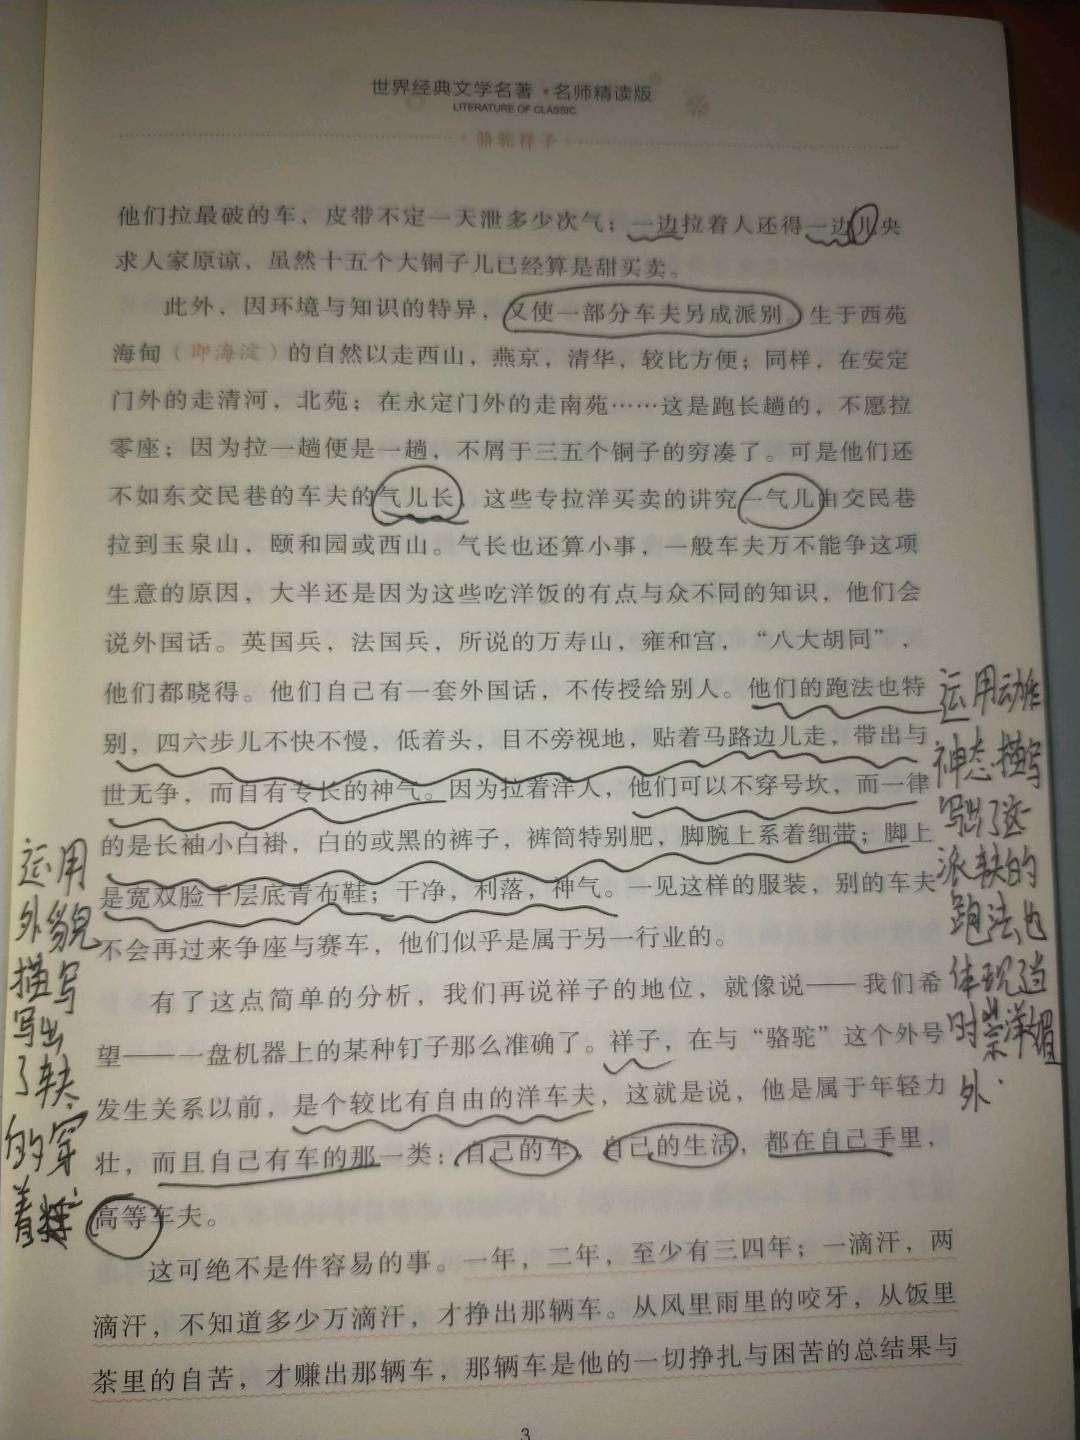 世界经典文学名著·名师精读版
LITERATURE OF CLASSIC
骆驼祥子
他们拉最破的车，皮带不定一天泄多少次气；一边拉着人还得一边儿央
求人家原谅，虽然十五个大铜子儿已经算是甜买卖。
此外，因环境与知识的特异，又使一部分车夫另成派别。生于西苑
海甸（即海淀）的自然以走西山，燕京，清华，较比方便；同样，在安定
门外的走清河，北苑；在永定门外的走南苑……这是跑长趟的，不愿拉
零座；因为拉一趟便是一趟，不屑于三五个铜子的穷凑了。可是他们还
不如东交民巷的车夫的气儿长，这些专拉洋买卖的讲究一气儿由交民巷
拉到玉泉山，颐和园或西山。气长也还算小事，一般车夫万不能争这项
生意的原因，大半还是因为这些吃洋饭的有点与众不同的知识，他们会
说外国话。英国兵，法国兵，所说的万寿山，雍和宫，“八大胡同”，
他们都晓得。他们自己有一套外国话，不传授给别人。他们的跑法也特
别，四六步儿不快不慢，低着头，目不旁视地，贴着马路边儿走，带出与
世无争，而自有专长的神气。因为拉着洋人，他们可以不穿号坎，而一律
的是长袖小白褂，白的或黑的裤子，裤筒特别肥，脚腕上系着细带；脚上
是宽双脸千层底青布鞋；干净，利落，神气。一见这样的服装，别的车夫
不会再过来争座与赛车，他们似乎是属于另一行业的。
有了这点简单的分析，我们再说祥子的地位，就像说——我们希
望——一盘机器上的某种钉子那么准确了。祥子，在与“骆驼”这个外号
发生关系以前，是个较比有自由的洋车夫，这就是说，他是属于年轻力
壮，而且自己有车的那一类：自己的车，自己的生活，都在自己手里，
高等车夫。
这可绝不是件容易的事。一年，二年，至少有三四年；一滴汗，两
滴汗，不知道多少万滴汗，才挣出那辆车。从风里雨里的咬牙，从饭里
茶里的自苦，才赚出那辆车，那辆车是他的一切挣扎与困苦的总结果与
3
运用动作
神态描写
写出了这
派车夫的
跑法也
体现了当
时崇洋媚
外.
运用
外貌
描写
写出
了车夫
的穿
着